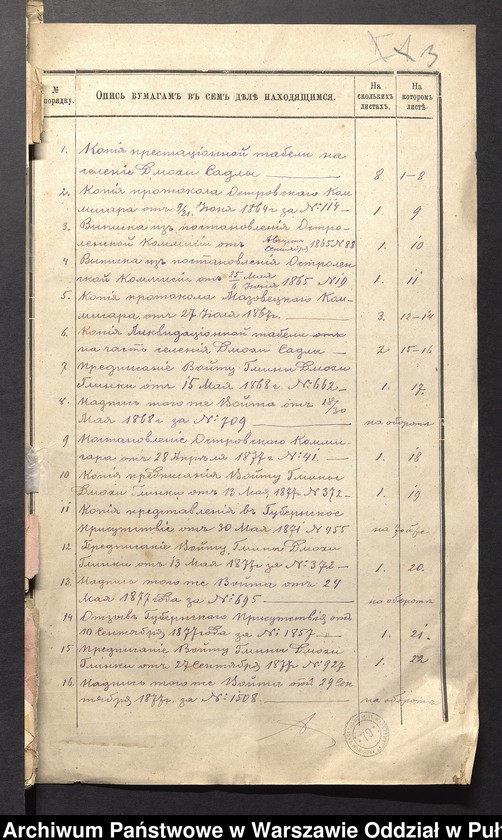 3
№ порядку.
Опись бумагамъ въ семъ дѣлѣ находящимся.
На сколькихъ листахъ.
На которомъ листѣ.
1. Копія престаціонной табели на
селеніе Дмохи Садлы — 8 1-8
2. Копія протокола Островскаго Ком-
мисара отъ 9/21 Юня 1864 г за №114 — 1. 9
3. Выписка изъ постановленія Остро-
ленской Коммисіи отъ Августа Сентября 1865 N 88 1. 10
4 Выписка изъ постановленія Остролен
ской Коммисіи отъ 25 Мая 6 Юнія 1865 N19 1. 11
5. Копія протокола Мазовецкаго Ком-
мисара отъ 27 Юля 1867г. — 3. 12-14
6. Копія Ликвидаціонной табели
на часть селенія Дмохи Садлы — 2 15-16
7 Предписаніе Войту Гмины Дмохи
Глинки отъ 15 Мая 1868 г №662 — 1. 17.
8. Надпись того же Войта отъ 18/30
Мая 1868 г за №709 — на оборотѣ
9 Постановленіе Островскаго Комми-
сара отъ 28 Апрѣля 1877 г №41. — 1. 18
10 Копія предписанія Войту Гмины
Дмохи Глинки отъ 13 Мая 1877 N 372 — 1. 19
11 Копія представленія въ Губернское
Присутствіе отъ 30 Мая 1871 N 455 на
12 Предписаніе Войту Гмины Дмохи
Глинки отъ 13 Мая 1877г за №372 — 1. 20.
13. Надпись того же Войта отъ 24
Мая 1877 года за №695 — на оборотѣ
14 Отзывъ Губернскаго Присутствія отъ
10 Сентября 1877 года за № 1857 — 1. 21.
15 Предписаніе Войту Гмины Дмохи
Глинки отъ 27 Сентября 1877 № 927 1. 22
16. Надпись того же Войта отъ 29 Сен
тября 1877г. за №1508 — на оборотѣ
Archiwum Państwowe w Warszawie Oddział w Puł